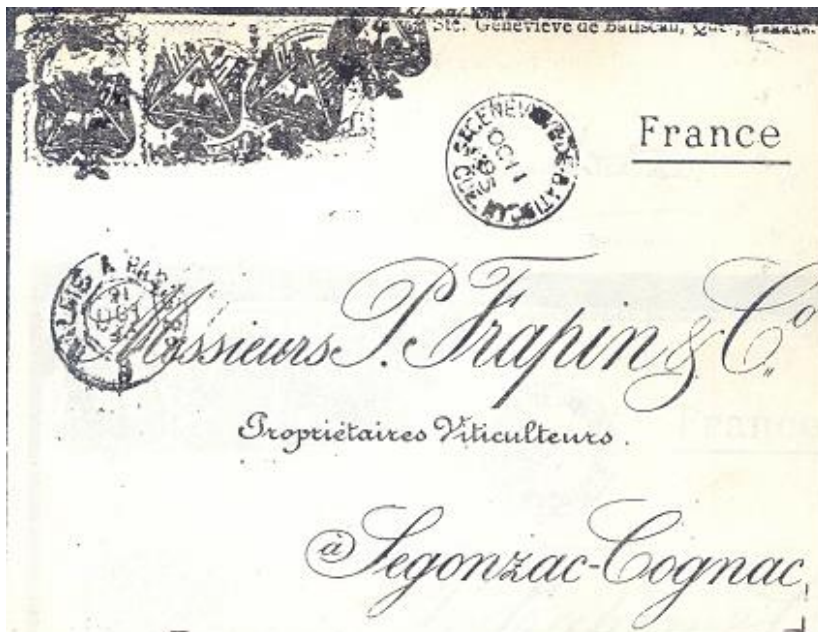 Ste. Geneviève de Batiscan, Que., Canada.
France
STE GENEVIEVE DE BATISCAN QUE
OC 11
05
Messieurs P. Frapin & Co.
Propriétaires Viticulteurs.
à Segonzac-Cognac